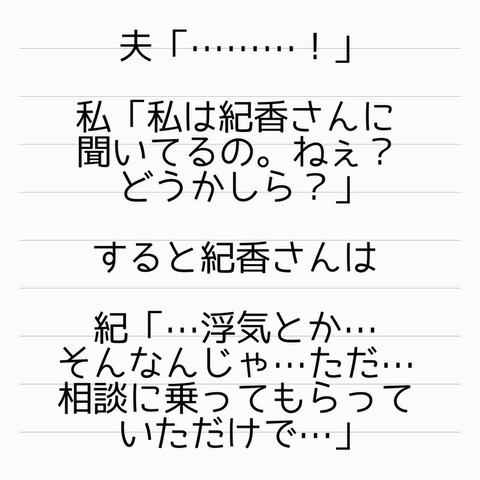 夫「………！」
私「私は紀香さんに
聞いてるの。ねぇ？
どうかしら？」
すると紀香さんは
紀「…浮気とか…
そんなんじゃ…ただ…
相談に乗ってもらって
いただけで…」